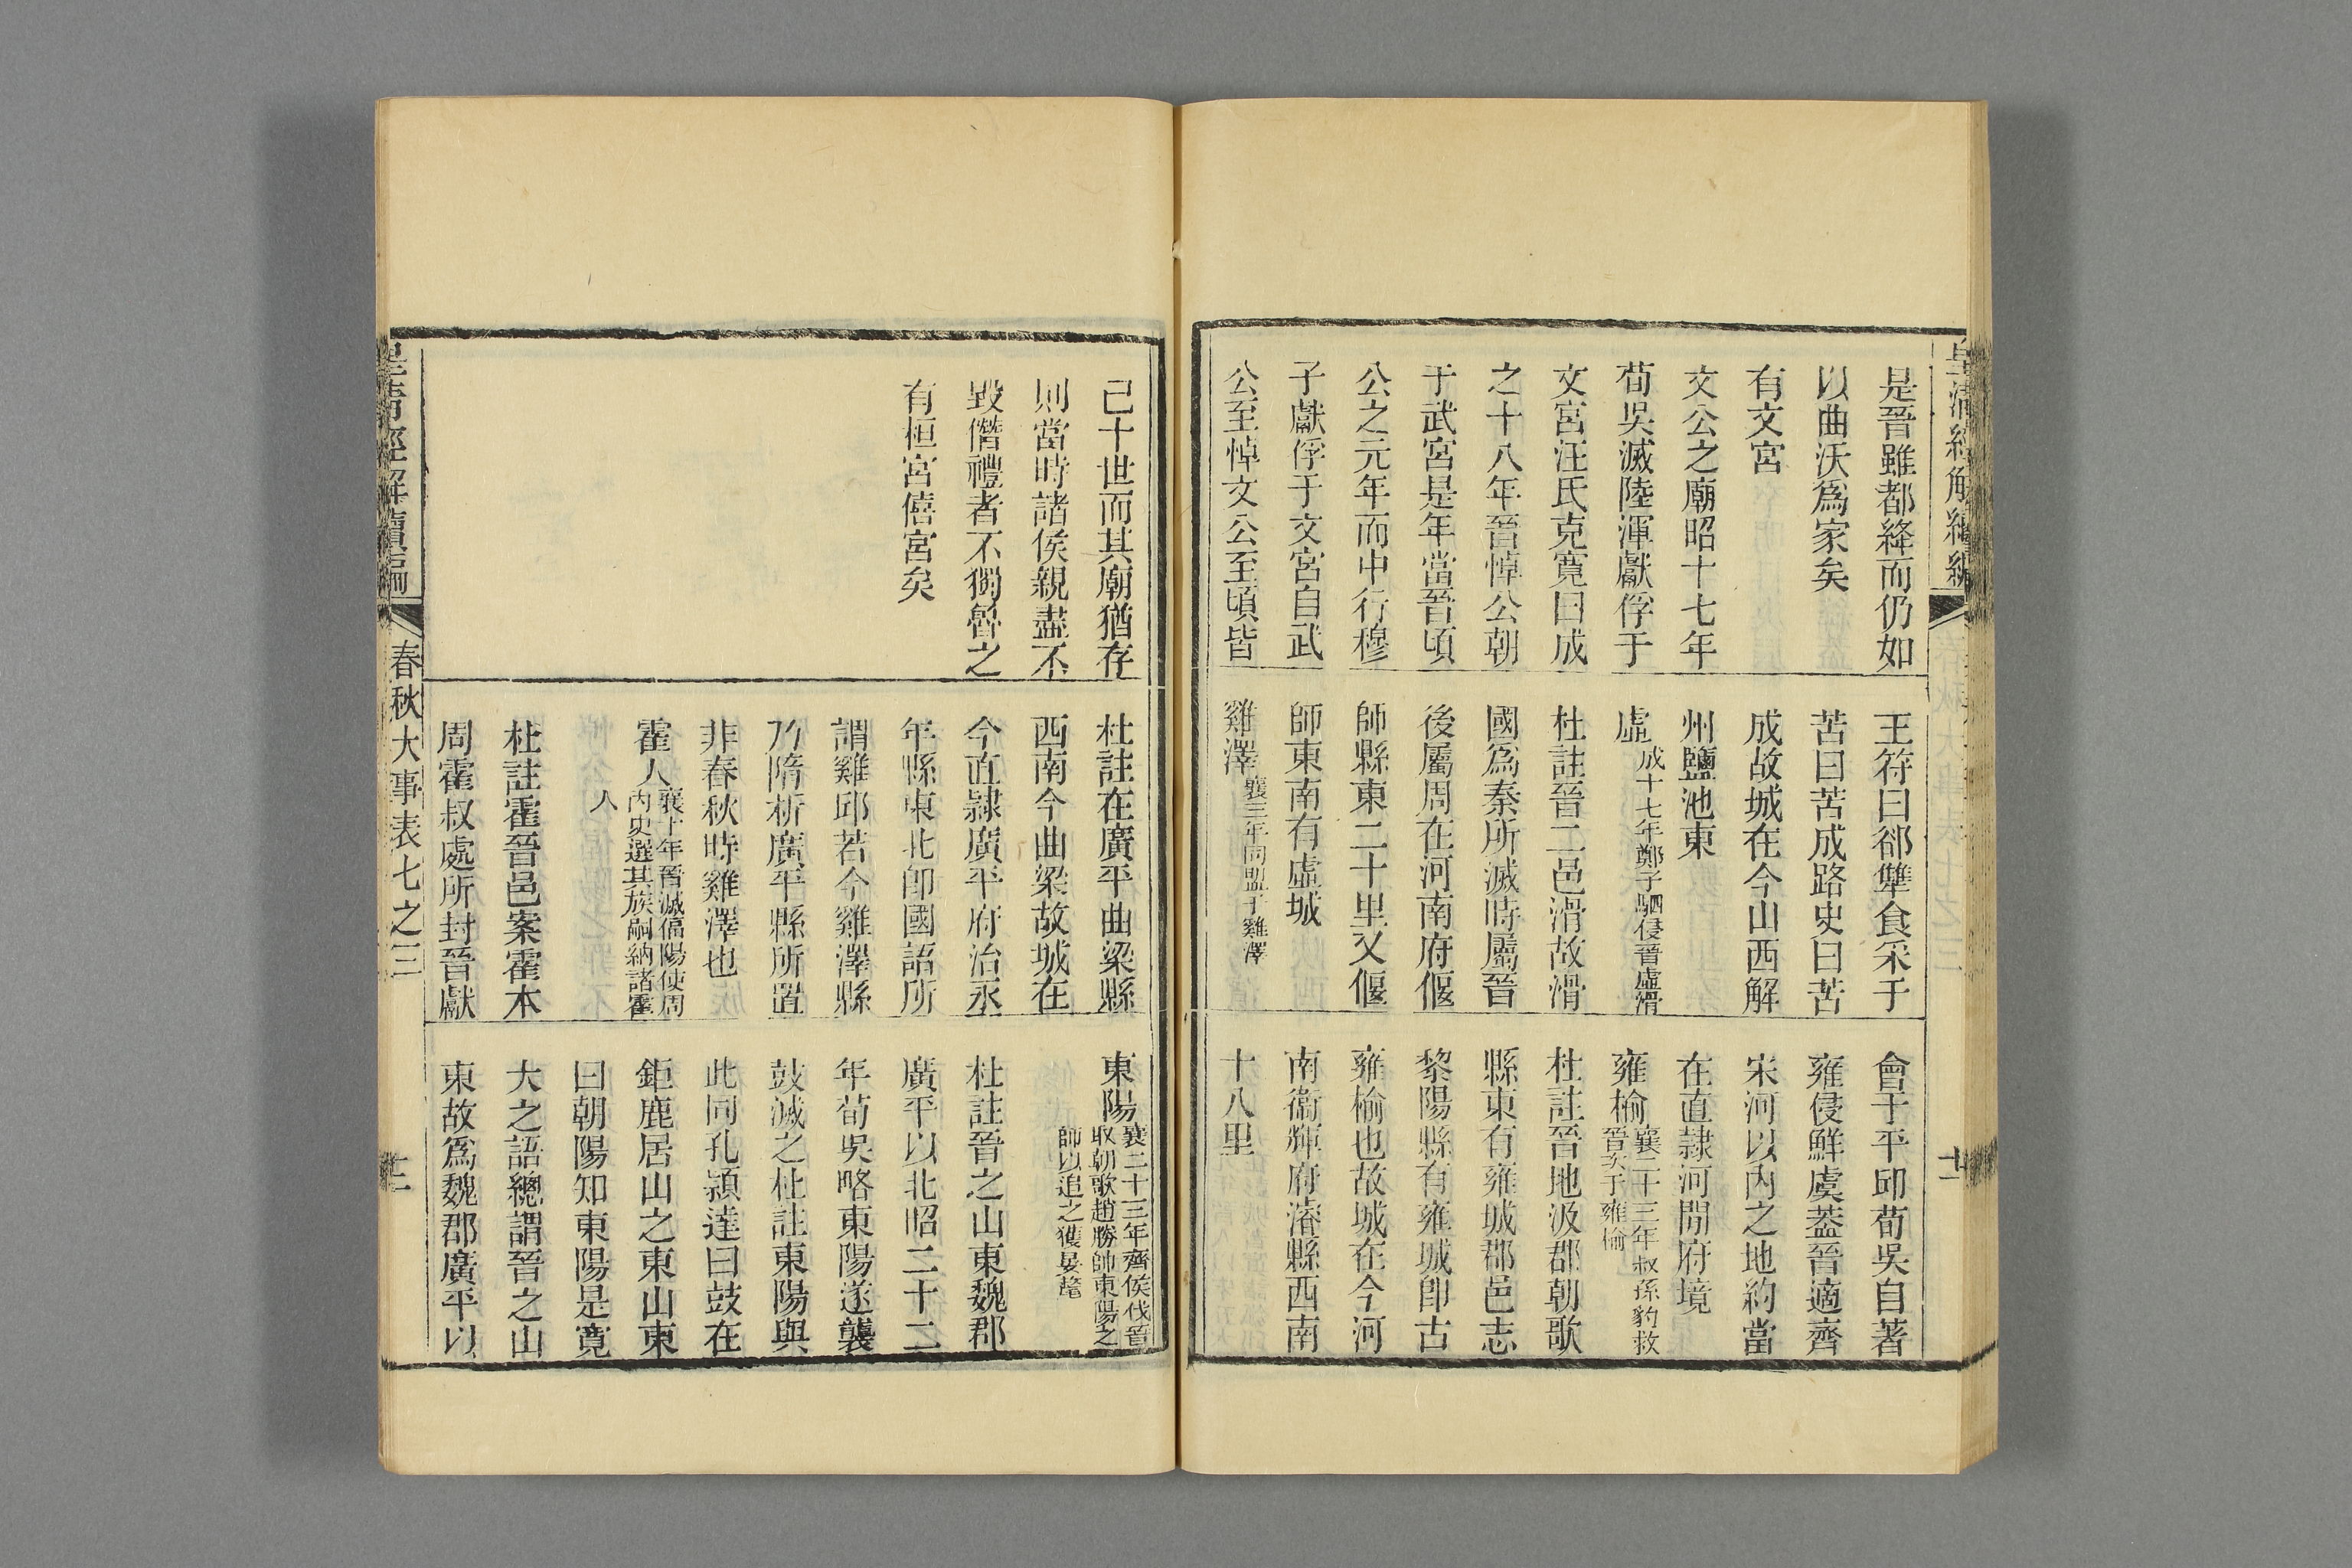 皇清經解續編
是晉雖都絳而仍如
以曲沃爲家矣
有文宮
文公之廟昭十七年
荀吳滅陸渾獻俘于
文宮汪氏克寬曰成
之十八年晉悼公朝
于武宮是年當晉頃
公之元年而中行穆
子獻俘于文宮自武
公至悼文公至頃皆
王符曰郤犨食采于
苦曰苦成路史曰苦
成故城在今山西解
州鹽池東
虛成十七年鄭子駟侵晉虛滑
杜註晉二邑滑故滑
國爲秦所滅時屬晉
後屬周在河南府偃
師縣東二十里又偃
師東南有虛城
雞澤襄三年同盟于雞澤
會于平邱荀吳自著
雍侵鮮虞葢晉適齊
宋河以內之地約當
在直隷河閒府境
雍榆襄二十三年叔孫豹救
晉次于雍榆
杜註晉地汲郡朝歌
縣東有雍城郡邑志
黎陽縣有雍城卽古
雍榆也故城在今河
南衞輝府濬縣西南
十八里
十一
已十世而其廟猶存
則當時諸侯親盡不
毀僭禮者不獨魯之
有桓宮僖宮矣
杜註在廣平曲梁縣
西南今曲梁故城在
今直隷廣平府治永
年縣東北卽國語所
謂雞邱若今雞澤縣
乃隋析廣平縣所置
非春秋時雞澤也
霍人襄十年晉滅偪陽使周
內史選其族嗣納諸霍
人
杜註霍晉邑案霍本
周霍叔處所封晉獻
東陽襄二十三年齊侯伐晉
取朝歌趙勝帥東陽之
師以追之獲晏氂
杜註晉之山東魏郡
廣平以北昭二十二
年荀吳略東陽遂襲
鼓滅之杜註東陽與
此同孔穎達曰鼓在
鉅鹿居山之東山東
曰朝陽知東陽是寬
大之語總謂晉之山
東故爲魏郡廣平以
皇清經解續編
春秋大事表七之三
十二